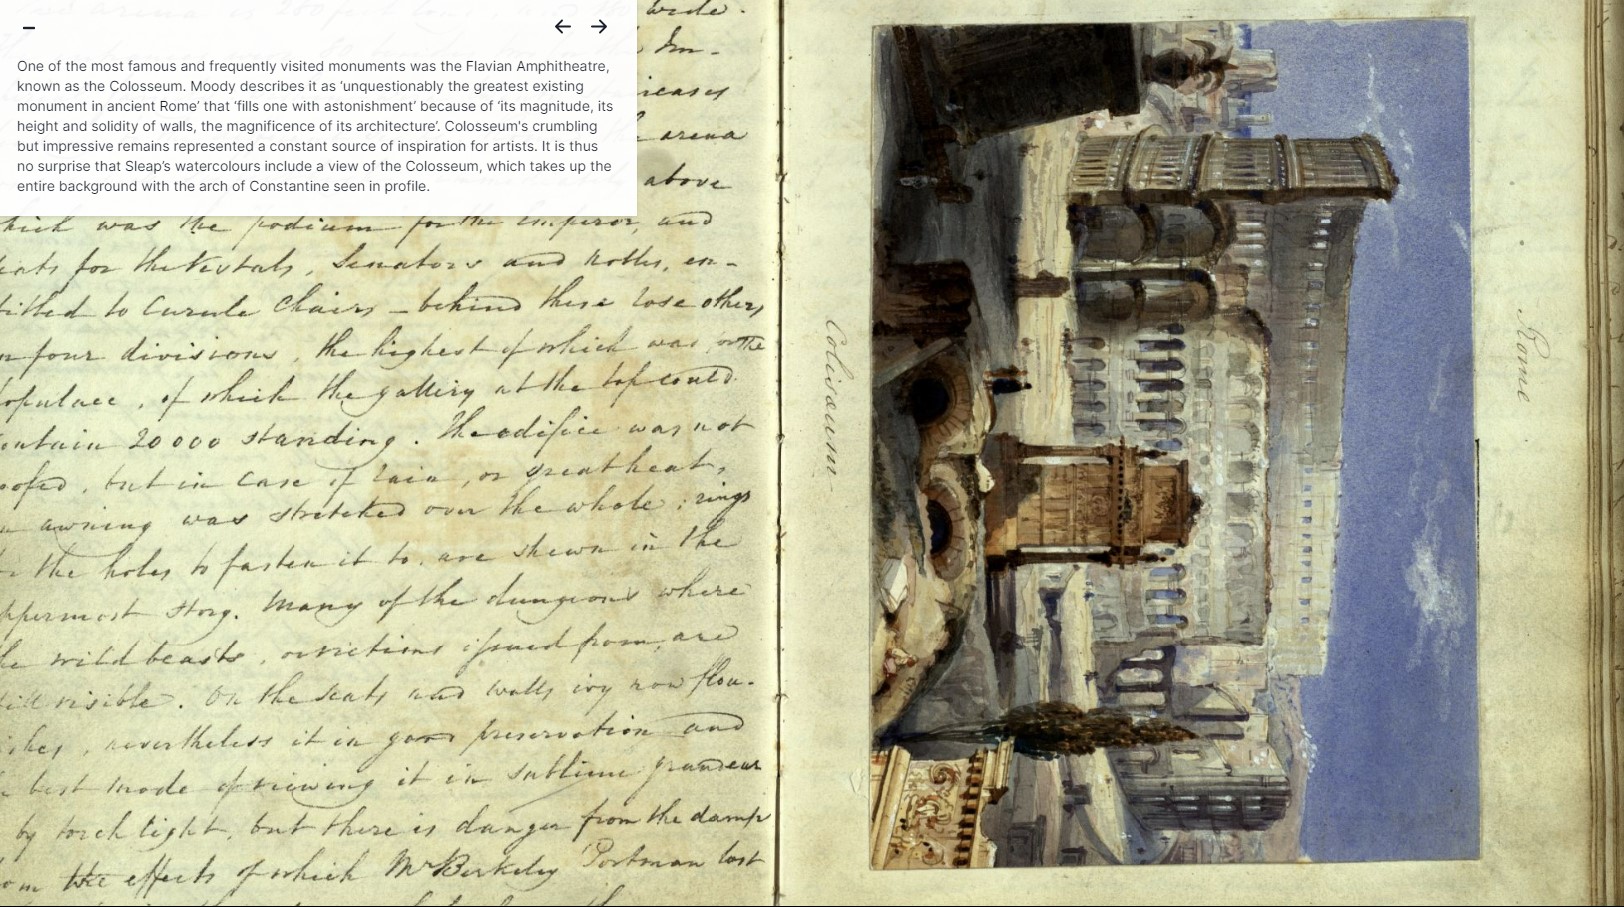 One of the most famous and frequently visited monuments was the Flavian Amphitheatre,
known as the Colosseum. Moody describes it as ‘unquestionably the greatest existing
monument in ancient Rome’ that ‘fills one with astonishment’ because of ‘its magnitude, its
height and solidity of walls, the magnificence of its architecture’. Colosseum's crumbling
but impressive remains represented a constant source of inspiration for artists. It is thus
no surprise that Sleap’s watercolours include a view of the Colosseum, which takes up the
entire background with the arch of Constantine seen in profile.
wide.
arena
above
which was the podium for the Emperor, and
seats for the Vestals, Senators and nobles, en-
titled to Curule Chairs – behind these rose others
in four divisions, the highest of which was for the
populace, of which the gallery at the top could
contain 20000 standing. The edifice was not
roofed, but in case of rain, or great heat,
an awning was stretched over the whole; rings
the holes to fasten it to, are shewn in the
uppermost story. Many of the dungeons where
the wild beasts, or victims issued from, are
still visible. On the seats and walls ivy now flou-
rishes, nevertheless it is in good preservation and
best mode of viewing it in sublime grandeur
by torch light, but there is danger from the damp
from the effects of which Mr Berkeley Portman lost
Colisoeum
Rome